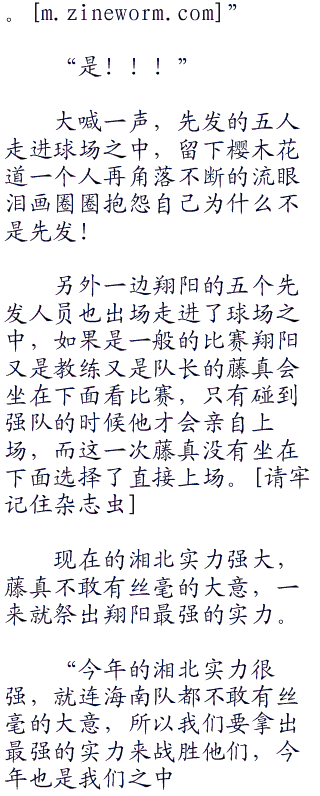 。[m.zineworm.com]”
“是！！！”
大喊一声，先发的五人
走进球场之中，留下樱木花
道一个人再角落不断的流眼
泪画圈圈抱怨自己为什么不
是先发！
另外一边翔阳的五个先
发人员也出场走进了球场之
中，如果是一般的比赛翔阳
又是教练又是队长的藤真会
坐在下面看比赛，只有碰到
强队的时候他才会亲自上
场，而这一次藤真没有坐在
下面选择了直接上场。[请牢
记住杂志虫]
现在的湘北实力强大，
藤真不敢有丝毫的大意，一
来就祭出翔阳最强的实力。
“今年的湘北实力很
强，就连海南队都不敢有丝
毫的大意，所以我们要拿出
最强的实力来战胜他们，今
年也是我们之中